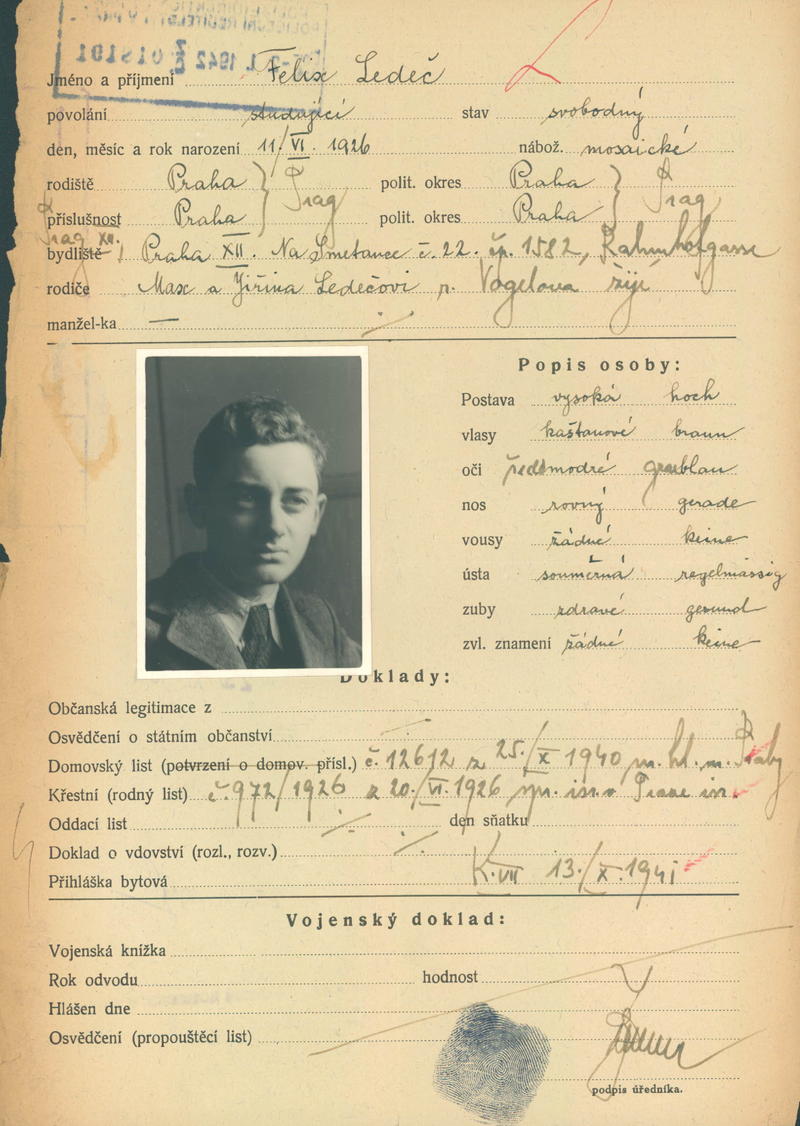 Jméno a příjmení Felix Ledeč
povolání studující stav svobodný
den, měsíc a rok narození 11/VI. 1926 nábož. mosaické
rodiště Praha } Prag polit. okres Praha } Prag
příslušnost Praha polit. okres Praha
Prag XII.
bydliště Praha XII. Na Smetance č. 22. čp. 1582,
rodiče Max a Jiřina Ledečovi r. Vogelova žijí
manžel-ka —
Popis osoby:
Postava vysoká hoch
vlasy kaštanové braun
oči šedomodré graublau
nos rovný gerade
vousy žádné keine
ústa souměrná regelmässig
zuby zdravé gesund
zvl. znamení žádné keine
Doklady:
Občanská legitimace z
Osvědčení o státním občanství
Domovský list (potvrzení o domov. přísl.) č. 12612 z 25./X 1940, m. hl. m. Prahy
Křestní (rodný list) č. 972/1926 z 20./VI. 1926
Oddací list den sňatku
Doklad o vdovství (rozl., rozv.)
Přihláška bytová K. VII 13./X. 1941
Vojenský doklad:
Vojenská knížka
Rok odvodu hodnost
Hlášen dne
Osvědčení (propouštěcí list)
podpis úředníka.